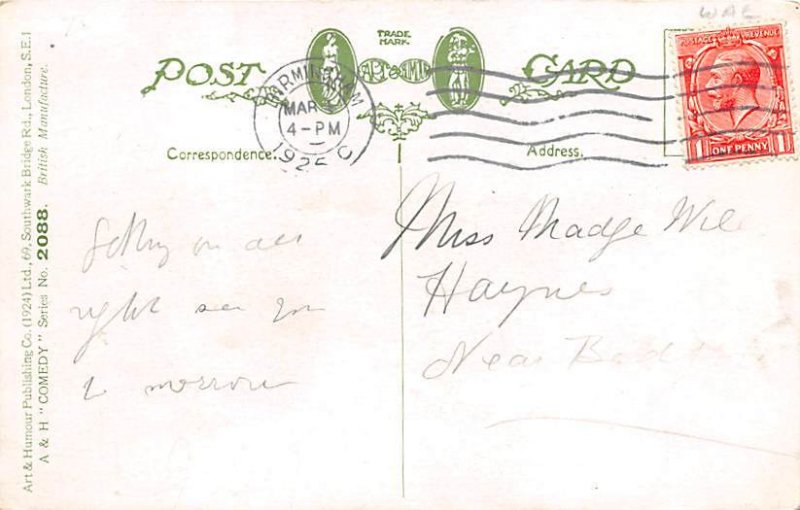 WAL
TRADE
MARK.
POST CARD
BIRMINGHAM
MAR
4-PM
1925
POSTAGE REVENUE
ONE PENNY
Correspondence.
Address.
on all
right see you
to morrow
Miss Madge
Haynes
Near
Art & Humour Publishing Co. (1924) Ltd., 69, Southwark Bridge Rd., London, S.E.1
A & H "COMEDY" Series No. 2088. British Manufacture.